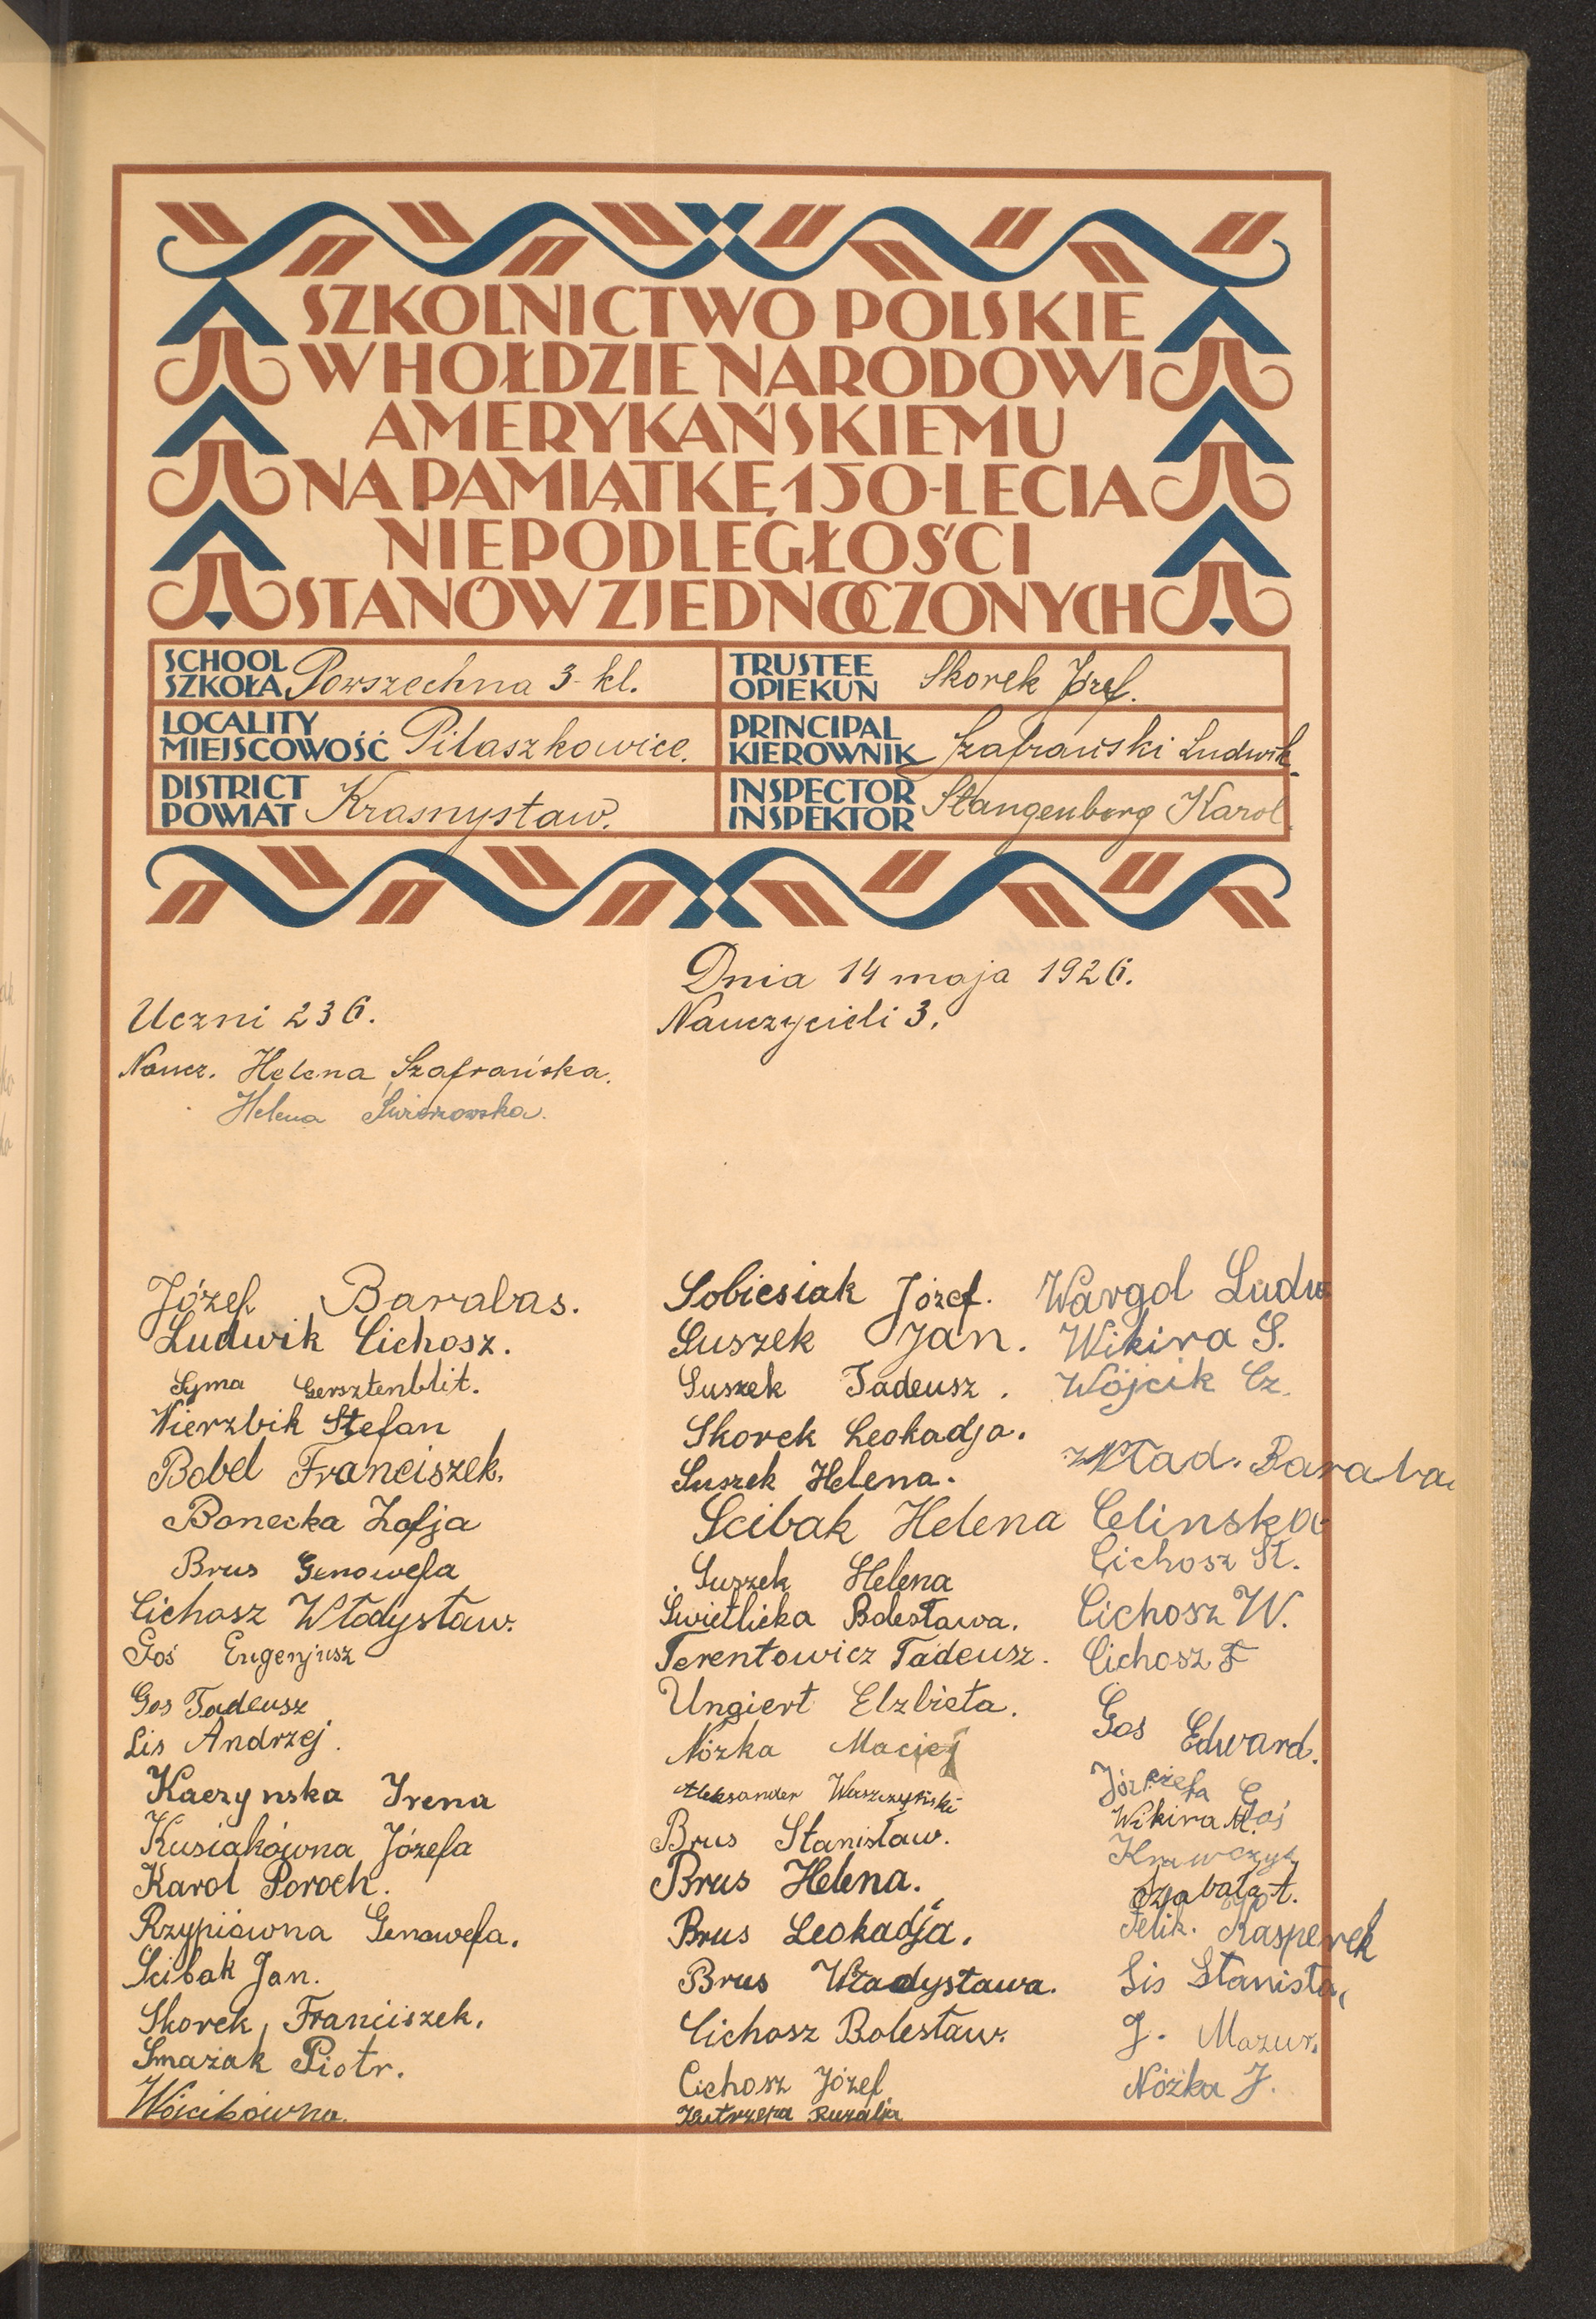 SZKOLNICTWO POLSKIE
W HOŁDZIE NARODOWI
AMERYKAŃSKIEMU
NA PAMIĄTKĘ 150-LECIA
NIEPODLEGŁOŚCI
STANÓW ZJEDNOCZONYCH
SCHOOL
SZKOŁA Powszechna 3-kl.
TRUSTEE
OPIEKUN Skorek Józef.
LOCALITY
MIEJSCOWOŚĆ Piłaszkowice.
PRINCIPAL
KIEROWNIK Szafrański Ludwik.
DISTRICT
POWIAT Krasnystaw.
INSPECTOR
INSPEKTOR Stangenberg Karol.
Dnia 14 maja 1926.
Uczni 236.
Nauczycieli 3.
Naucz. Helena Szafrańska.
Helena
Józef Barabas.
Ludwik Cichosz.
Syma Gersztenblit.
Wierzbik Stefan
Bobel Franciszek.
Bonecka Zofja
Brus Genowefa
Cichosz Władysław.
Goś Eugenjusz
Gos Tadeusz
Lis Andrzej.
Kaczynska Irena
Kusiakówna Józefa
Karol Poroch.
Rzypiówna Genowefa.
Scibak Jan.
Skorek Franciszek.
Smażak Piotr.
Wójcikówna.
Sobiesiak Józef.
Suszek Jan.
Suszek Tadeusz.
Skorek Leokadja.
Suszek Helena.
Scibak Helena
Suszek Helena
Świetlicka Bolesława.
Terentowicz Tadeusz.
Ungiert Elzbieta.
Nózka Maciej
Aleksander Waszczyński
Brus Stanisław.
Brus Helena.
Brus Leokadja.
Brus Władysława.
Cichosz Bolesław.
Cichosz Józef
Ruzalja
Wargol Ludw
Wikira S.
Wójcik Cz.
Wład. Baraba
Celinska
Cichosz St.
Cichosz W.
Cichosz F
Gos Edward.
Józefa Goś
Wikira M.
Krawczyk
Szabała t.
Felik. Kasperek
Lis Stanisła
J. Mazur.
Nózka J.